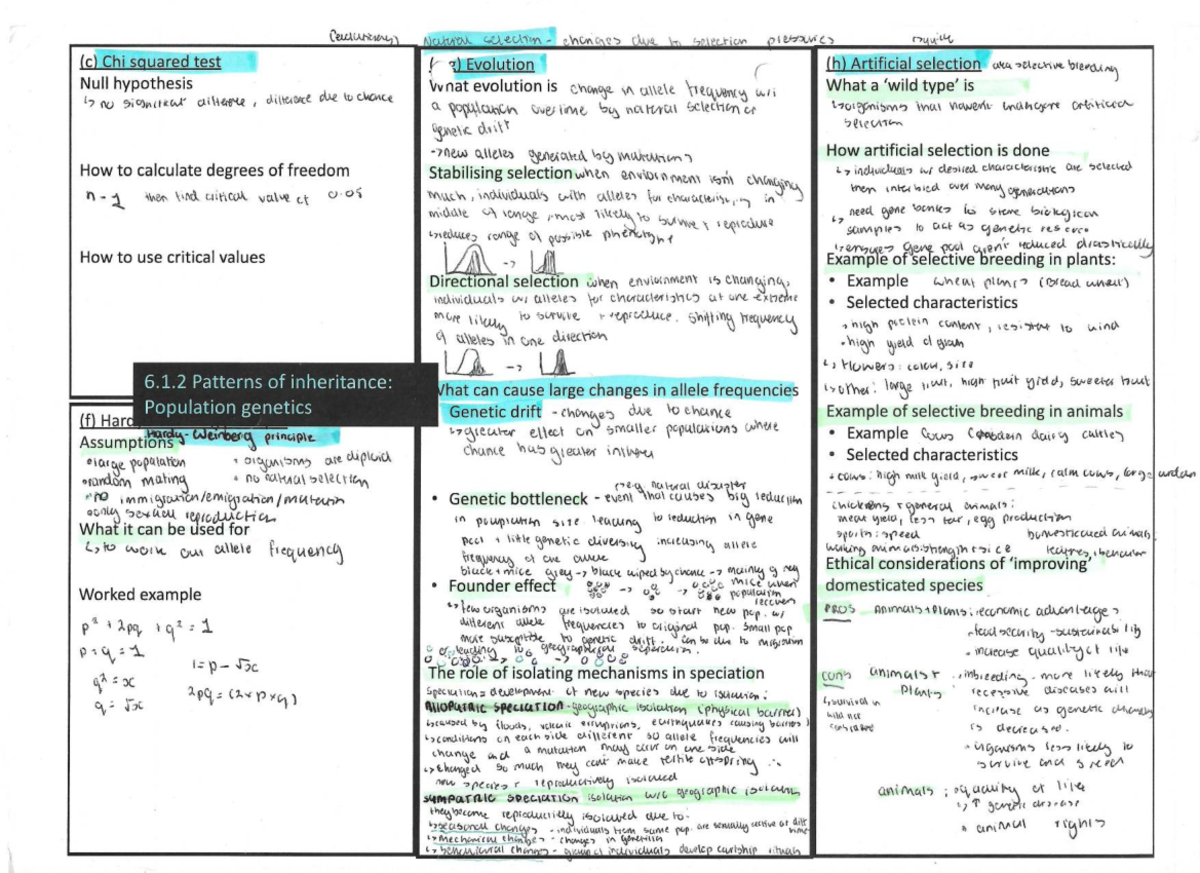 Natural selection - changes due to selection pressures
(c) Chi squared test
Null hypothesis
↳ no significant difference, difference due to chance
How to calculate degrees of freedom
n - 1 then find critical value at 0.05
How to use critical values
6.1.2 Patterns of inheritance:
Population genetics
(f) Hard
Hardy-Weinberg principle
Assumptions
• large population • organisms are diploid
• random mating • no natural selection
• no immigration/emigration/mutation
• only sexual reproduction
What it can be used for
↳ to work out allele frequency
Worked example
p² + 2pq + q² = 1
p + q = 1
1 = p - √x
q² = x
2pq = (2 × p × q)
q = √x
) Evolution
What evolution is change in allele frequency w/i
a population overtime by natural selection or
genetic drift
→ new alleles generated by mutations
Stabilising selection when environment isn't changing
much, individuals with alleles for characteristics in
middle of range, most likely to survive + reproduce
↳ reduces range of possible phenotype
Directional selection when environment is changing,
individuals w/ alleles for characteristics at one extreme
more likely to survive + reproduce. shifting frequency
of alleles in one direction
What can cause large changes in allele frequencies
Genetic drift - changes due to chance
↳ greater effect on smaller populations where
chance has greater
e.g. natural disaster
• Genetic bottleneck - event that causes big reduction
in population size leading to reduction in gene
pool + little genetic diversity increasing allele
frequency of one
black + mice grey → black wiped by chance → mainly g
mice when
• Founder effect
population
recovers
↳ few organisms are isolated so start new pop. w/
different allele frequencies to original pop. small pop
more susceptible to genetic drift. can be due to migration
or leading to geographical separation.
The role of isolating mechanisms in speciation
speciation = development of new species due to isolation:
ALLOPATRIC SPECIATION - geographic isolation (physical barrier)
↳ caused by floods, volcanic eruptions, earthquakes causing barriers
↳ conditions on each side different so allele frequencies will
change and a mutation may occur on one side
↳ changed so much they can't make fertile offspring ∴
new species + reproductively isolated
SYMPATRIC SPECIATION isolation w/o geographic isolation
they become reproductively isolated due to:
↳ seasonal changes - individuals from same pop. are sexually active at diff times
↳ mechanical changes - changes in genitalia
↳ behavioural changes - group of individuals develop courtship rituals
(h) Artificial selection aka selective breeding
What a 'wild type' is
↳ organisms that haven't undergone artificial
selection
How artificial selection is done
↳ individuals w/ desired characteristic are selected
then interbred over many generations
↳ need gene banks to store biological
samples to act as genetic resource
↳ ensures gene pool aren't reduced drastically
Example of selective breeding in plants:
• Example wheat plants (bread wheat)
• Selected characteristics
• high protein content, resistant to wind
• high yield of grain
↳ flowers: colour, size
↳ other: large fruit, high fruit yield, sweeter fruit
Example of selective breeding in animals
• Example cows (modern dairy cattle)
• Selected characteristics
• cows: high milk yield, milk, calm cows, large udder
chickens + general animals:
meat yield, less fat, egg production
sports: speed domesticated animals
working animals: strength + size features, behaviour
Ethical considerations of 'improving'
domesticated species
PROS animals + plants: economic advantages
- food security - sustainability
• increase quality of life
CONS animals + plants: • inbreeding - more likely that
recessive diseases will
↳ survival in wild not
increase as genetic diversity
is decreased.
• organisms less likely to
survive and breed
animals: • quality of life
↳ ↑ genetic disease
• animal rights